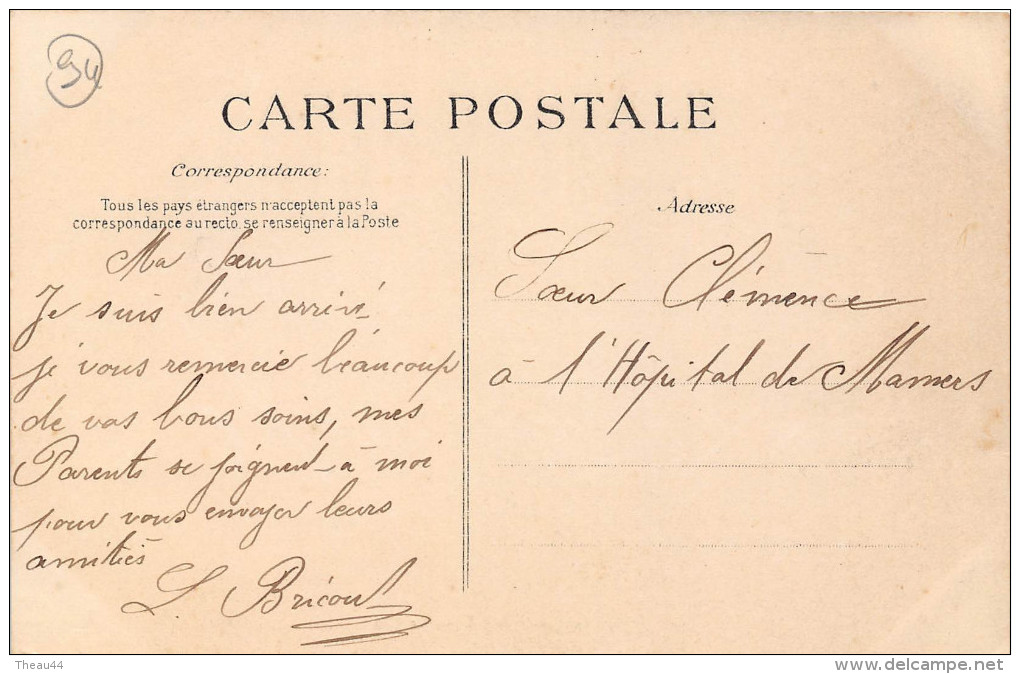 94
CARTE POSTALE
Correspondance:
Tous les pays étrangers n'acceptent pas la
correspondance au recto, se renseigner à la Poste
Ma Sœur
Je suis bien arrivé
je vous remercie béaucoup
de vos bons soins, mes
Parents se joignent à moi
pour vous envoyer leurs
amitiés
L Bricout
Adresse
Sœur Clémence
à l'Hôpital de Mamers
Theau44
www.delcampe.net